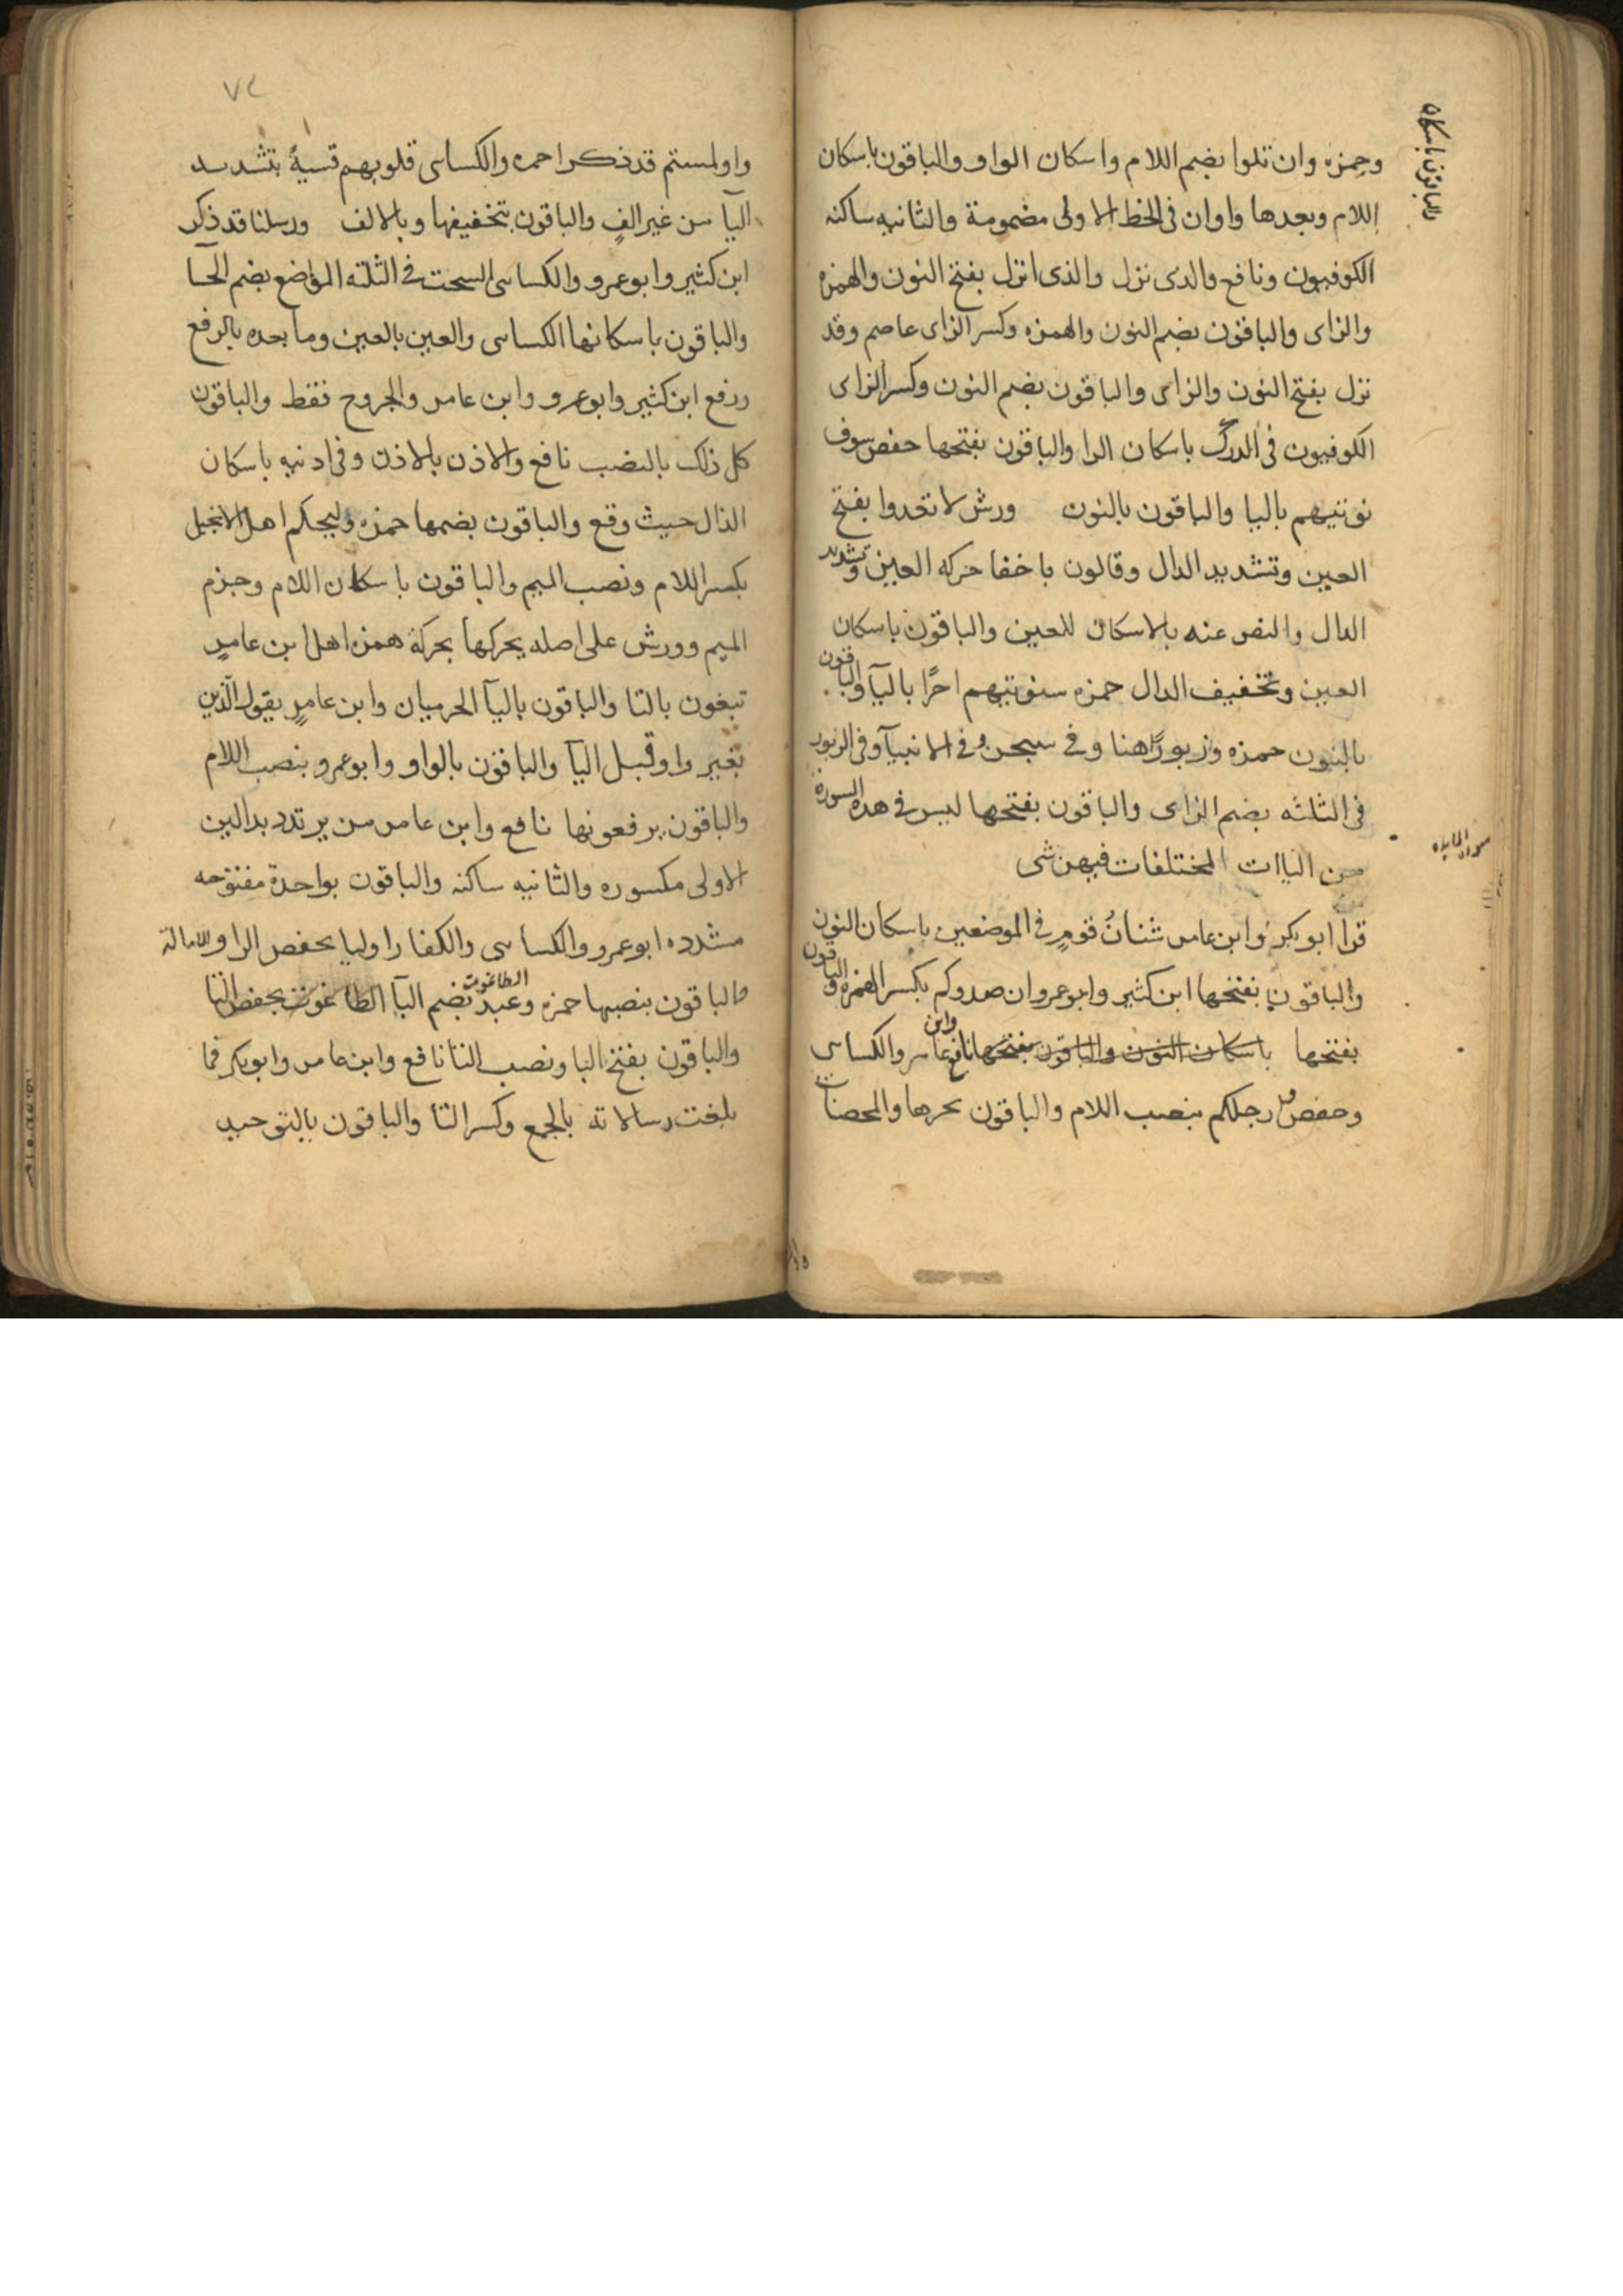 وحمزه وان تلوا بضم اللام واسكان الواو والباقون باسكان
اللام وبعدها واوان فى الخط الاولى مضمومة والثانيه ساكنه
الكوفيون ونافع والذى نزل والذى انزل بفتح النون والهمزه
والزاى والباقون بضم النون والهمزه وكسر الزاى عاصم وقد
نزل بفتح النون والزاى والباقون بضم النون وكسر الزاى
الكوفيون فى الدرك باسكان الرا والباقون بفتحها حفص سوف
نوتيهم باليا والباقون بالنون ورش لا تعدوا بفتح
العين وتشديد الدال وقالون باخفا حركه العين وتشديد
الدال والنص عنه بالاسكان للعين والباقون باسكان
العين وتخفيف الدال حمزه سنوتيهم اجرًا باليآ والباقون
بالنون حمزه وزبورًا هنا وفى سبحن وفى الانبيآ وفى الزبور
فى الثلثه بضم الزاى والباقون بفتحها ليس فى هذه السورة
من الياات المختلفات فيهن شى
سورة المايده
قرا ابو بكر وابن عامر شنانُ قومٍ فى الموضعين باسكان النون
والباقون بفتحها ابن كثير وابو عمرو ان صدوكم بكسر الهمزه والباقون
بفتحها باسكان النون والباقون بفتحها نافع وابن عامر والكساى
وحفص وارجلكم بنصب اللام والباقون بجرها والمحصنات
والباقون باسكان
٧٢
واولمستم قد ذكرا حمزه والكساى قلوبهم قسيةً بتشديد
اليآ من غير الفٍ والباقون بتخفيفها وبالالف ورسلنا قد ذكر
ابن كثير وابو عمرو والكساى السحت فى الثلثه المواضع بضم الحآ
والباقون باسكانها الكساى والعين بالعين وما بعده بالرفع
ورفع ابن كثير وابو عمرو وابن عامر والجروح فقط والباقون
كل ذلك بالنصب نافع والاذن بالاذن وفى اذنيه باسكان
الذال حيث وقع والباقون بضمها حمزه وليحكم اهل الانجيل
بكسر اللام ونصب الميم والباقون باسكان اللام وجزم
الميم وورش على اصله يحركها بحركة همزه اهل ابن عامرٍ
تبغون بالتا والباقون باليآ الحرميان وابن عامرٍ يقول الّذين
بغير واو قبل اليآ والباقون بالواو وابو عمرو بنصب اللام
والباقون يرفعونها نافع وابن عامر من يرتدد بدالين
الاولى مكسوره والثانيه ساكنه والباقون بواحدة مفتوحه
مشدده ابو عمرو والكساى والكفار اوليا بخفص الرا والامالة
والباقون بنصبها حمزه وعبد الطاغوت بضم البآ الطاغوت بخفض التا
والباقون بفتح البا ونصب التا نافع وابن عامر وابو بكر فما
بلغت رسالاته بالجمع وكسر التا والباقون بالتوحيد